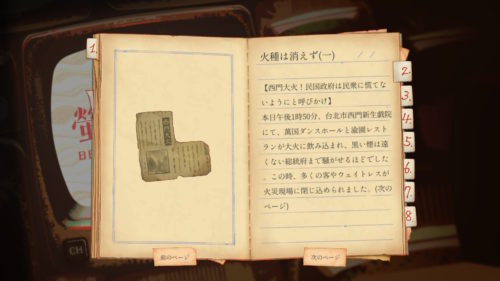 1.
火種は消えず(一)
【西門大火！民国政府は民衆に慌てな
いようにと呼びかけ】
本日午後1時50分、台北市西門新生戲院
にて、萬国ダンスホールと渝園レスト
ランが大火に飲み込まれ、黒い煙は遠
くない総統府まで騒がせるほどでした
。この時、多くの客やウェイトレスが
火災現場に閉じ込められました。(次の
ページ)
2.
3.
4.
5.
6.
7.
8.
前のページ
次のページ
CH